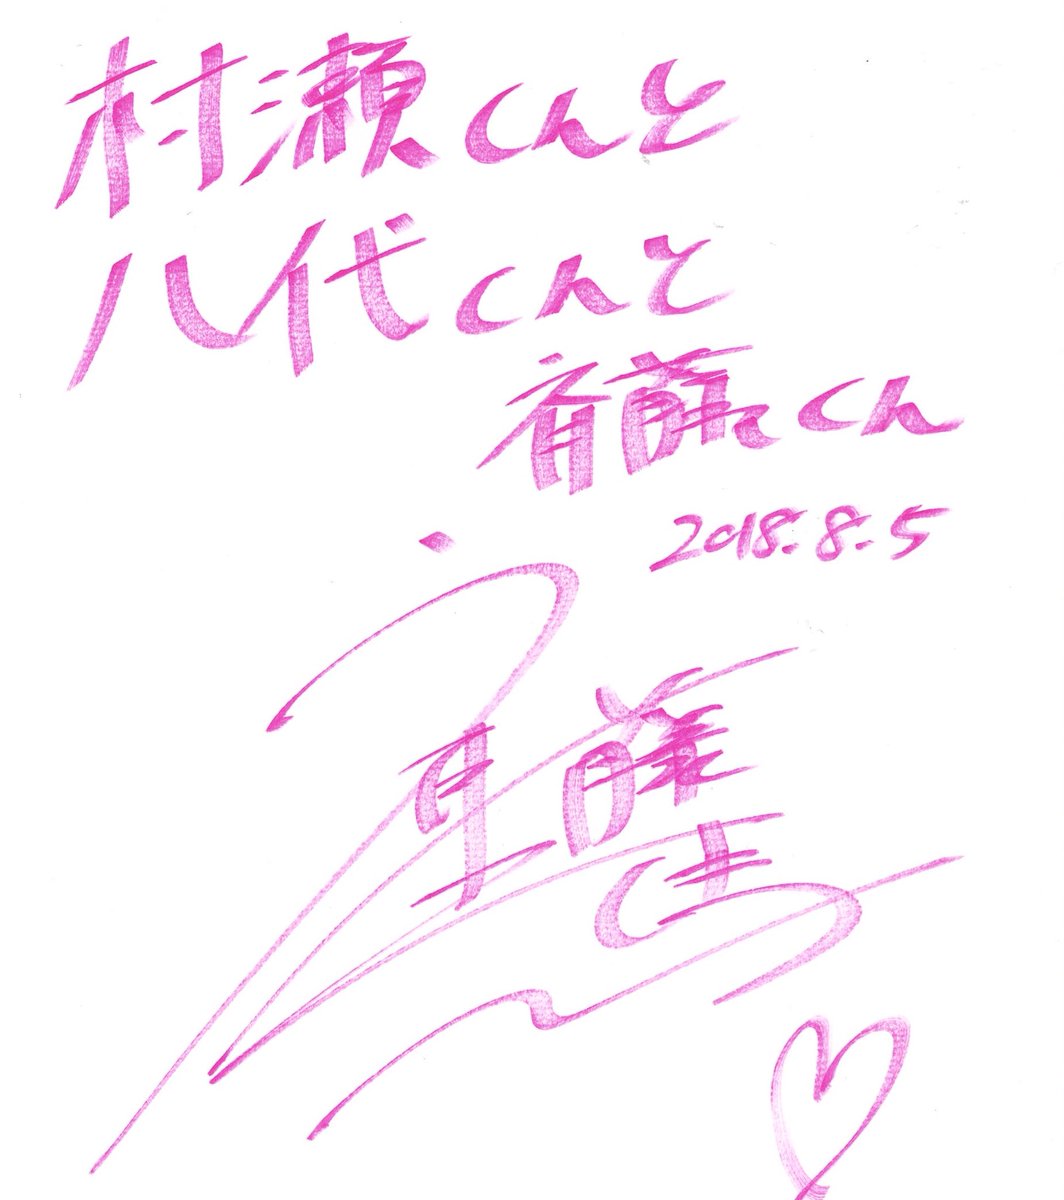 村瀬くんと
八代くんと
斉藤くん
2018.8.5